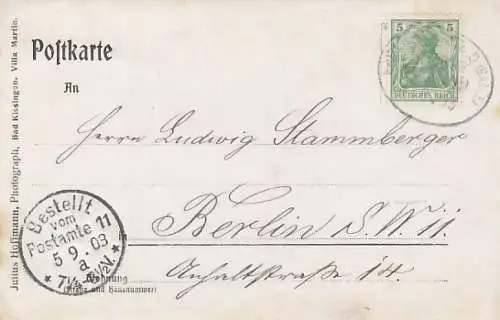 Postkarte
An
5
DEUTSCHES REICH
Herrn Ludwig Stammberger
in
Berlin S.W. 11
Anhaltstraße 14.
Wohnung
(Straße und Hausnummer)
Bestellt
vom
Postamte 11
5 9. 03
a.
* 7¼-8½V. *
Julius Hoffmann, Photograph, Bad Kissingen, Villa Martin.